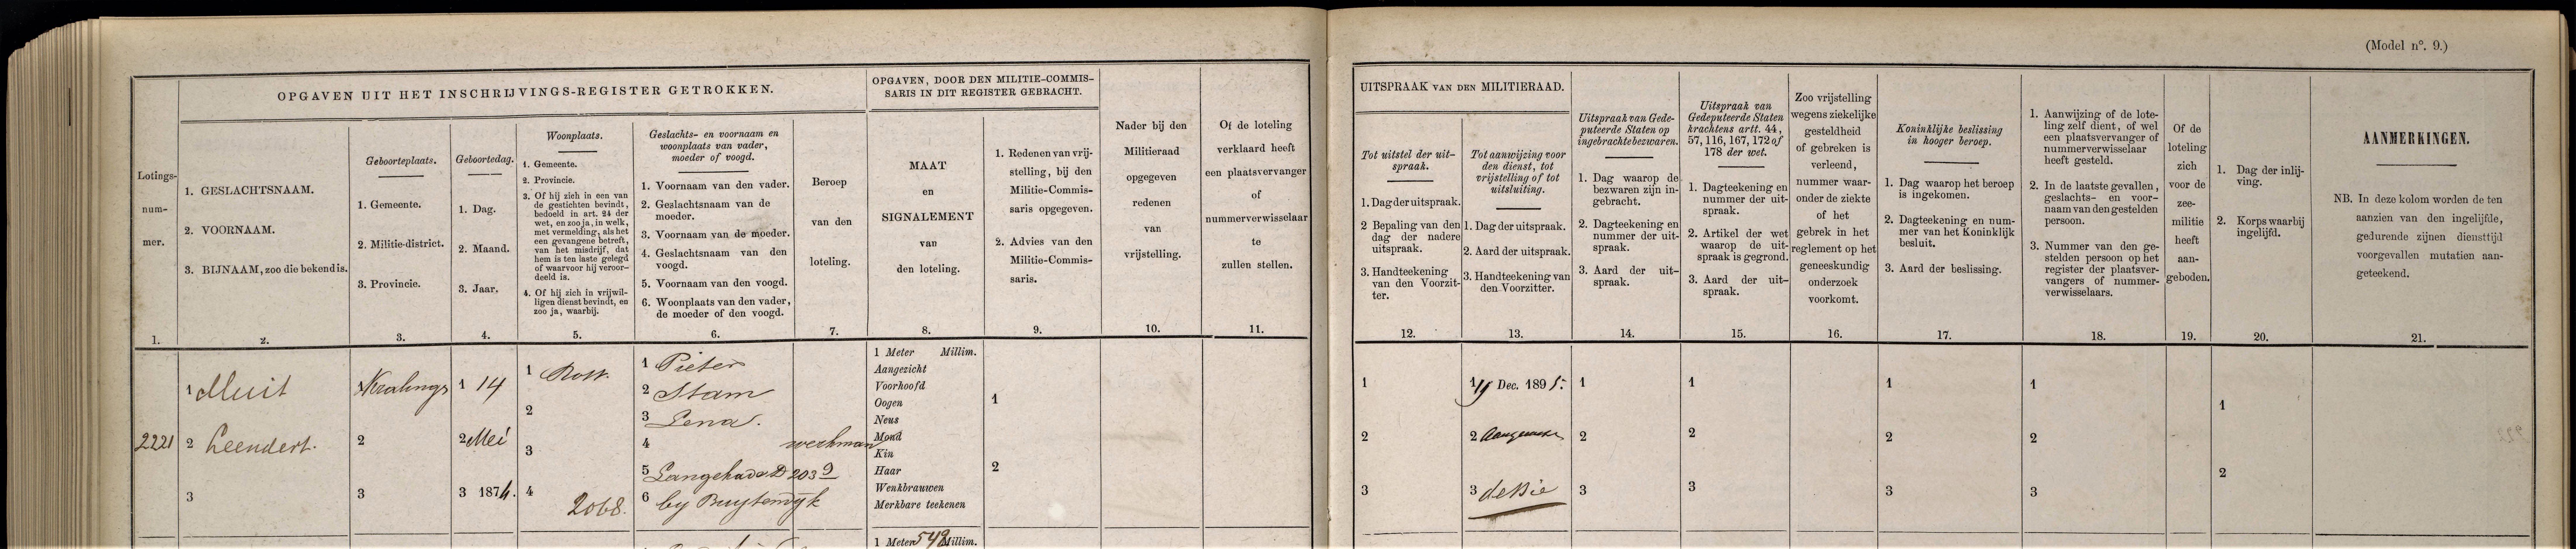 (Model nº. 9.)
OPGAVEN UIT HET INSCHRIJVINGS-REGISTER GETROKKEN.
OPGAVEN, DOOR DEN MILITIE-COMMIS-
SARIS IN DIT REGISTER GEBRACHT.
Lotings-
num-
mer.
1.
1. GESLACHTSNAAM.
2. VOORNAAM.
3. BIJNAAM, zoo die bekend is.
2.
Geboorteplaats.
1. Gemeente.
2. Militie-district.
3. Provincie.
3.
Geboortedag.
1. Dag.
2. Maand.
3. Jaar.
4.
Woonplaats.
1. Gemeente.
2. Provincie.
3. Of hij zich in een van
de gestichten bevindt,
bedoeld in art. 24 der
wet, en zoo ja, in welk,
met vermelding, als het
een gevangene betreft,
van het misdrijf, dat
hem is ten laste gelegd
of waarvoor hij veroor-
deeld is.
4. Of hij zich in vrijwil-
ligen dienst bevindt, en
zoo ja, waarbij.
5.
Geslachts- en voornaam en
woonplaats van vader,
moeder of voogd.
1. Voornaam van den vader.
2. Geslachtsnaam van de
moeder.
3. Voornaam van de moeder.
4. Geslachtsnaam van den
voogd.
5. Voornaam van den voogd.
6. Woonplaats van den vader,
de moeder of den voogd.
6.
Beroep
van den
loteling.
7.
MAAT
en
SIGNALEMENT
van
den loteling.
8.
1. Redenen van vrij-
stelling, bij den
Militie-Commis-
saris opgegeven.
2. Advies van den
Militie-Commis-
saris.
9.
Nader bij den
Militieraad
opgegeven
redenen
van
vrijstelling.
10.
Of de loteling
verklaard heeft
een plaatsvervanger
of
nummerverwisselaar
te
zullen stellen.
11.
UITSPRAAK VAN DEN MILITIERAAD.
Tot uitstel der uit-
spraak.
1. Dag der uitspraak.
2 Bepaling van den
dag der nadere
uitspraak.
3. Handteekening
van den Voorzit-
ter.
12.
Tot aanwijzing voor
den dienst, tot
vrijstelling of tot
uitsluiting.
1. Dag der uitspraak.
2. Aard der uitspraak.
3. Handteekening van
den Voorzitter.
13.
Uitspraak van Gede-
puteerde Staten op
ingebrachte bezwaren.
1. Dag waarop de
bezwaren zijn in-
gebracht.
2. Dagteekening en
nummer der uit-
spraak.
3. Aard der uit-
spraak.
14.
Uitspraak van
Gedeputeerde Staten
krachtens artt. 44,
57, 116, 167, 172 of
178 der wet.
1. Dagteekening en
nummer der uit-
spraak.
2. Artikel der wet
waarop de uit-
spraak is gegrond.
3. Aard der uit-
spraak.
15.
Zoo vrijstelling
wegens ziekelijke
gesteldheid
of gebreken is
verleend,
nummer waar-
onder de ziekte
of het
gebrek in het
reglement op het
geneeskundig
onderzoek
voorkomt.
16.
Koninklijke beslissing
in hooger beroep.
1. Dag waarop het beroep
is ingekomen.
2. Dagteekening en num-
mer van het Koninklijk
besluit.
3. Aard der beslissing.
17.
1. Aanwijzing of de lote-
ling zelf dient, of wel
een plaatsvervanger of
nummerverwisselaar
heeft gesteld.
2. In de laatste gevallen,
geslachts- en voor-
naam van den gestelden
persoon.
3. Nummer van den ge-
stelden persoon op het
register der plaatsver-
vangers of nummer-
verwisselaars.
18.
Of de
loteling
zich
voor de
zee-
militie
heeft
aan-
geboden.
19.
1. Dag der inlij-
ving.
2. Korps waarbij
ingelijfd.
20.
AANMERKINGEN.
NB. In deze kolom worden de ten
aanzien van den ingelijfde,
gedurende zijnen diensttijd
voorgevallen mutatien aan-
geteekend.
21.
2221
1 Muit
2 Leendert.
3
1 Kralings
2
3
1 14
2 Mei
3 1874.
1 Rott.
2
3
4
2068.
1 Pieter
2 Stam
3 Lena.
4
5 Langekade D 203
6 by Buytendyk
werkman
1 Meter Millim.
Aangezicht
Voorhoofd
Oogen
Neus
Mond
Kin
Haar
Wenkbrauwen
Merkbare teekenen
1
2
1
2
3
1 Dec. 1895.
2
3 de Bie
1
2
3
1
2
3
1
2
3
1
2
3
1
2
1 Meter 549 Millim.